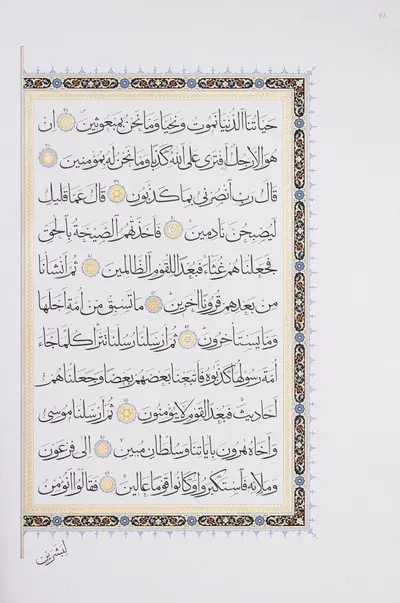 ٧٨
حَيَاتُنَا ٱلدُّنْيَا نَمُوتُ وَنَحْيَا وَمَا نَحْنُ بِمَبْعُوثِينَ إِنْ
هُوَ إِلَّا رَجُلٌ ٱفْتَرَى عَلَى ٱللَّهِ كَذِبًا وَمَا نَحْنُ لَهُ بِمُؤْمِنِينَ
قَالَ رَبِّ ٱنْصُرْنِي بِمَا كَذَّبُونِ قَالَ عَمَّا قَلِيلٍ
لَيُصْبِحُنَّ نَادِمِينَ فَأَخَذَتْهُمُ ٱلصَّيْحَةُ بِٱلْحَقِّ
فَجَعَلْنَاهُمْ غُثَاءً فَبُعْدًا لِلْقَوْمِ ٱلظَّالِمِينَ ثُمَّ أَنْشَأْنَا
مِنْ بَعْدِهِمْ قُرُونًا آخَرِينَ مَا تَسْبِقُ مِنْ أُمَّةٍ أَجَلَهَا
وَمَا يَسْتَأْخِرُونَ ثُمَّ أَرْسَلْنَا رُسُلَنَا تَتْرَا كُلَّمَا جَاءَ
أُمَّةً رَسُولُهَا كَذَّبُوهُ فَأَتْبَعْنَا بَعْضَهُمْ بَعْضًا وَجَعَلْنَاهُمْ
أَحَادِيثَ فَبُعْدًا لِقَوْمٍ لَا يُؤْمِنُونَ ثُمَّ أَرْسَلْنَا مُوسَى
وَأَخَاهُ هَرُونَ بِآيَاتِنَا وَسُلْطَانٍ مُبِينٍ إِلَى فِرْعَوْنَ
وَمَلَائِهِ فَٱسْتَكْبَرُوا وَكَانُوا قَوْمًا عَالِينَ فَقَالُوا أَنُؤْمِنُ
لِبَشَرَيْنِ